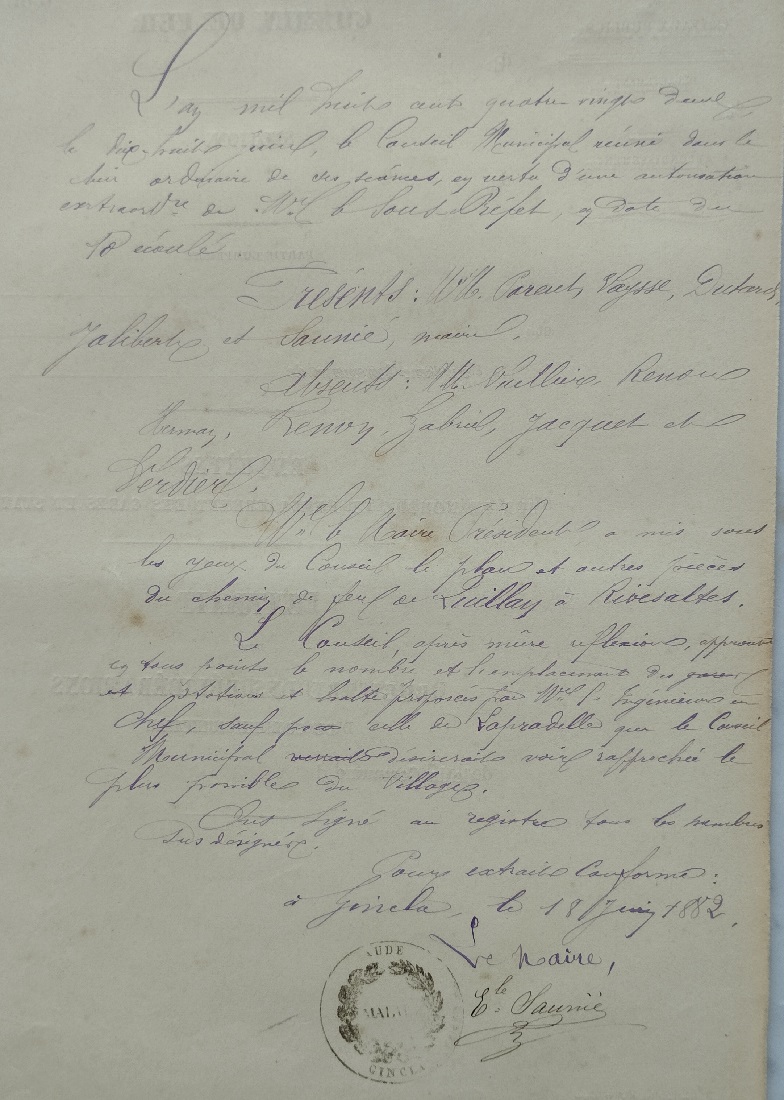 L'an mil huit cent quatre-vingt deux
le dix-huit juin, le Conseil Municipal réuni dans le
lieu ordinaire de ses séances, en vertu d'une autorisation
extraordre de Mr le Sous Préfet, en date du
10 écoulé
Présents: MM. Parent, Vaysse, Dutard,
Jalibert et Saunié, maire.
Absents: MM. Renou
Herman, Renoy, Gabriel, Jacquet et
Verdier.
Mr le Maire Président, a mis sous
les yeux du Conseil le plan et autres pièces
du chemin de fer de Quillan à Rivesaltes.
Le Conseil, après mûre reflexion, approuve
en tous points le nombre et l'emplacement des gares
et stations et halte proposés par Mr l'Ingénieur en
Chef, sauf pour celle de Lapradelle que le Conseil
Municipal désirerait voir rapprochée le
plus possible du Village.
Ont signé au registre tous les membres
sus désignés.
Pour extrait conforme:
à Gincla, le 18 Juin 1882.
Le Maire,
Ele Saunié
AUDE
GINCLA